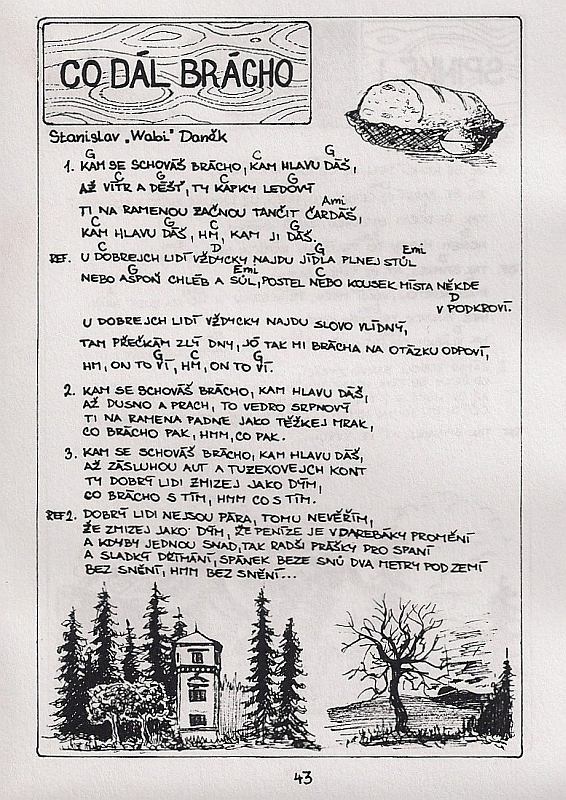 CO DÁL, BRÁCHO
Stanislav „Wabi" Daněk
G C G
1. KAM SE SCHOVÁŠ BRÁCHO, KAM HLAVU DÁŠ,
C G C G
AŽ VÍTR A DÉŠŤ, TY KAPKY LEDOVÝ
Ami
TI NA RAMENOU ZAČNOU TANČIT ČARDÁŠ,
C G C G
KAM HLAVU DÁŠ, HM, KAM JI DÁŠ.
C D G Emi
REF. U DOBREJCH LIDÍ VŽDYCKY NAJDU JÍDLA PLNEJ STŮL
G Emi C
NEBO ASPOŇ CHLÉB A SŮL, POSTEL NEBO KOUSEK MÍSTA NĚKDE
D
V PODKROVÍ.
U DOBREJCH LIDÍ VŽDYCKY NAJDU SLOVO VLÍDNÝ,
TAM PŘEČKÁM ZLÝ DNY, JÓ TAK MI BRÁCHA NA OTÁZKU ODPOVÍ,
G C G
HM, ON TO VÍ, HM, ON TO VÍ.
2. KAM SE SCHOVÁŠ BRÁCHO, KAM HLAVU DÁŠ,
AŽ DUSNO A PRACH, TO VEDRO SRPNOVÝ
TI NA RAMENA PADNE JAKO TĚŽKEJ MRAK,
CO BRÁCHO PAK, HMM, CO PAK.
3. KAM SE SCHOVÁŠ BRÁCHO, KAM HLAVU DÁŠ,
AŽ ZÁSLUHOU AUT A TUZEXOVEJCH KONT
TY DOBRÝ LIDI ZMIZEJ JAKO DÝM,
CO BRÁCHO S TÍM, HMM CO S TÍM.
REF2. DOBRÝ LIDI NEJSOU PÁRA, TOMU NEVĚŘÍM,
ŽE ZMIZEJ JAKO DÝM, ŽE PENÍZE JE V DAREBÁKY PROMĚNÍ
A KDYBY JEDNOU SNAD, TAK RADŠI PRÁŠKY PRO SPANÍ
A SLADKÝ DŘÍMÁNÍ, SPÁNEK BEZE SNŮ DVA METRY POD ZEMÍ
BEZ SNĚNÍ, HMM BEZ SNĚNÍ...
43